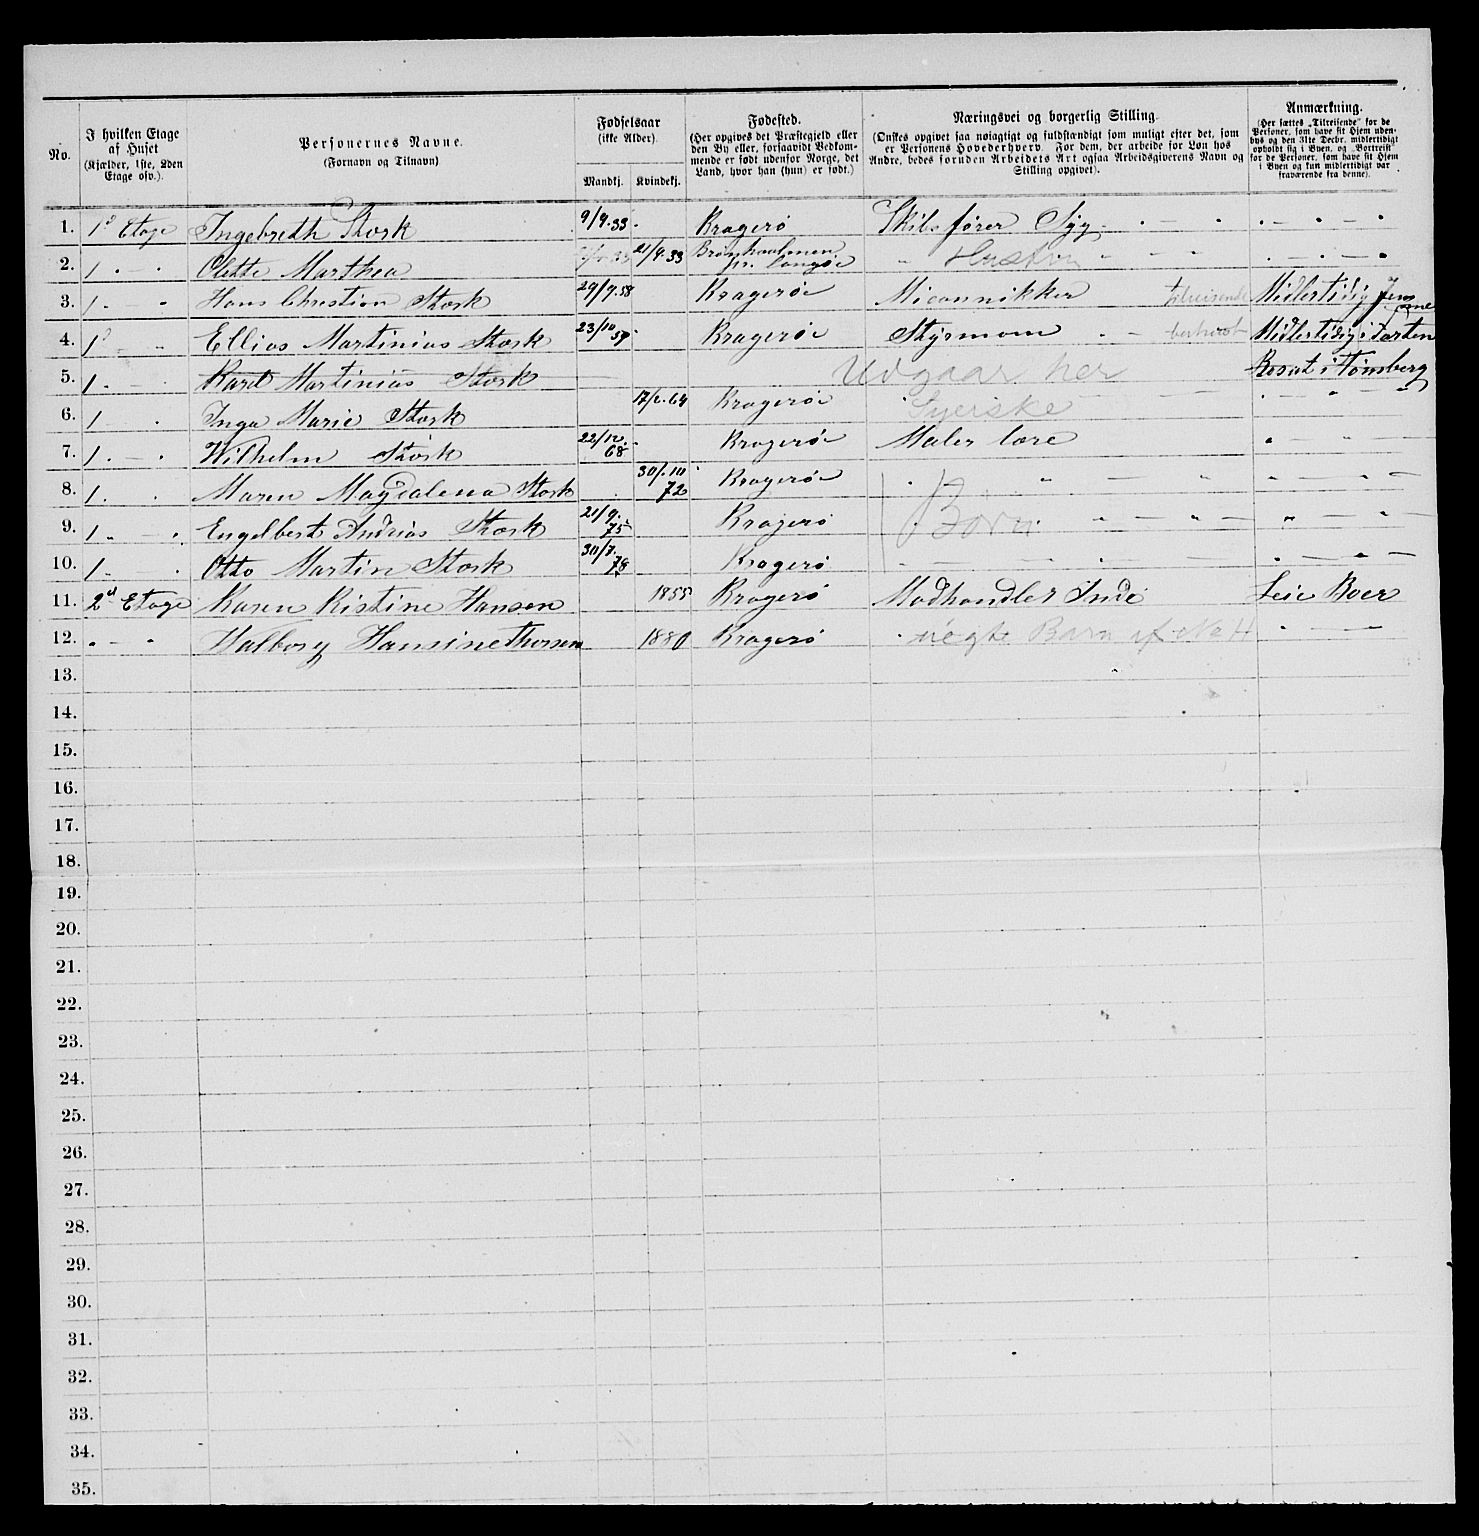 No.
I hvilken Etage
af Huset
(Kjælder, 1ste, 2den
Etage osv.).
Personernes Navne.
(Fornavn og Tilnavn)
Fødselsaar
(ikke Alder).
Mandkj. Kvindekj.
Fødested.
(Her opgives det Præstegjeld eller
den By eller, forsaavidt Vedkom-
mende er født udenfor Norge, det
Land, hvor han (hun) er født.)
Næringsvei og borgerlig Stilling.
(Ønskes opgivet saa nøiagtigt og fuldstændigt som muligt efter det, som
er Personens Hovederhverv. For dem, der arbeide for Løn hos
Andre, bedes foruden Arbeidets Art ogsaa Arbeidsgiverens Navn og
Stilling opgivet).
Anmærkning.
(Her sættes „Tilreisende" for de
Personer, som have sit Hjem uden-
bys og den 31te Decbr. midlertidigt
opholdt sig i Byen, og „Bortreist"
for de Personer, som have sit Hjem
i Byen og kun midlertidigt var
fraværende fra denne).
1. 1ᵉ Etage Ingebreth Stork 9/9.33 Kragerø Skibsfører Syg
2. 1 Olette Marthea 21/9.33 Langøe Hustru
3. 1 Hans Christian Stork 29/9.58 Kragerøe Micannikker tilreisende Midlertidig
4. 1 Ellias Martinius Stork 23/10 59 Kragerøe Styrmam bortreist Midlertidig i Farten
5. 1 Karel Martinias Stork Udgaar her Bosat i Tønsberg
6. 1 Inga Marie Stork 64 Kragerøe Syerske
7. 1 Wilhelm Stork 22/12 68 Kragerøe Maler lære
8. 1 Maren Magdalena Stork 30/10 72 Kragerøe
9. 1 Engelbert Andrias Stork 21/9. 75 Kragerø Børn
10. 1 Otto Martin Stork 30/7. 78 Kragerø
11. 2ᵈ Etage Karen Kristine Hansen 1855 Kragerø Madhandler Inde Leie Boer
12. Halborg Hansine Thorsen 1880 Kragerø uegte Barn af No 11
13.
14.
15.
16.
17.
18.
19.
20.
21.
22.
23.
24.
25.
26.
27.
28.
29.
30.
31.
32.
33.
34.
35.